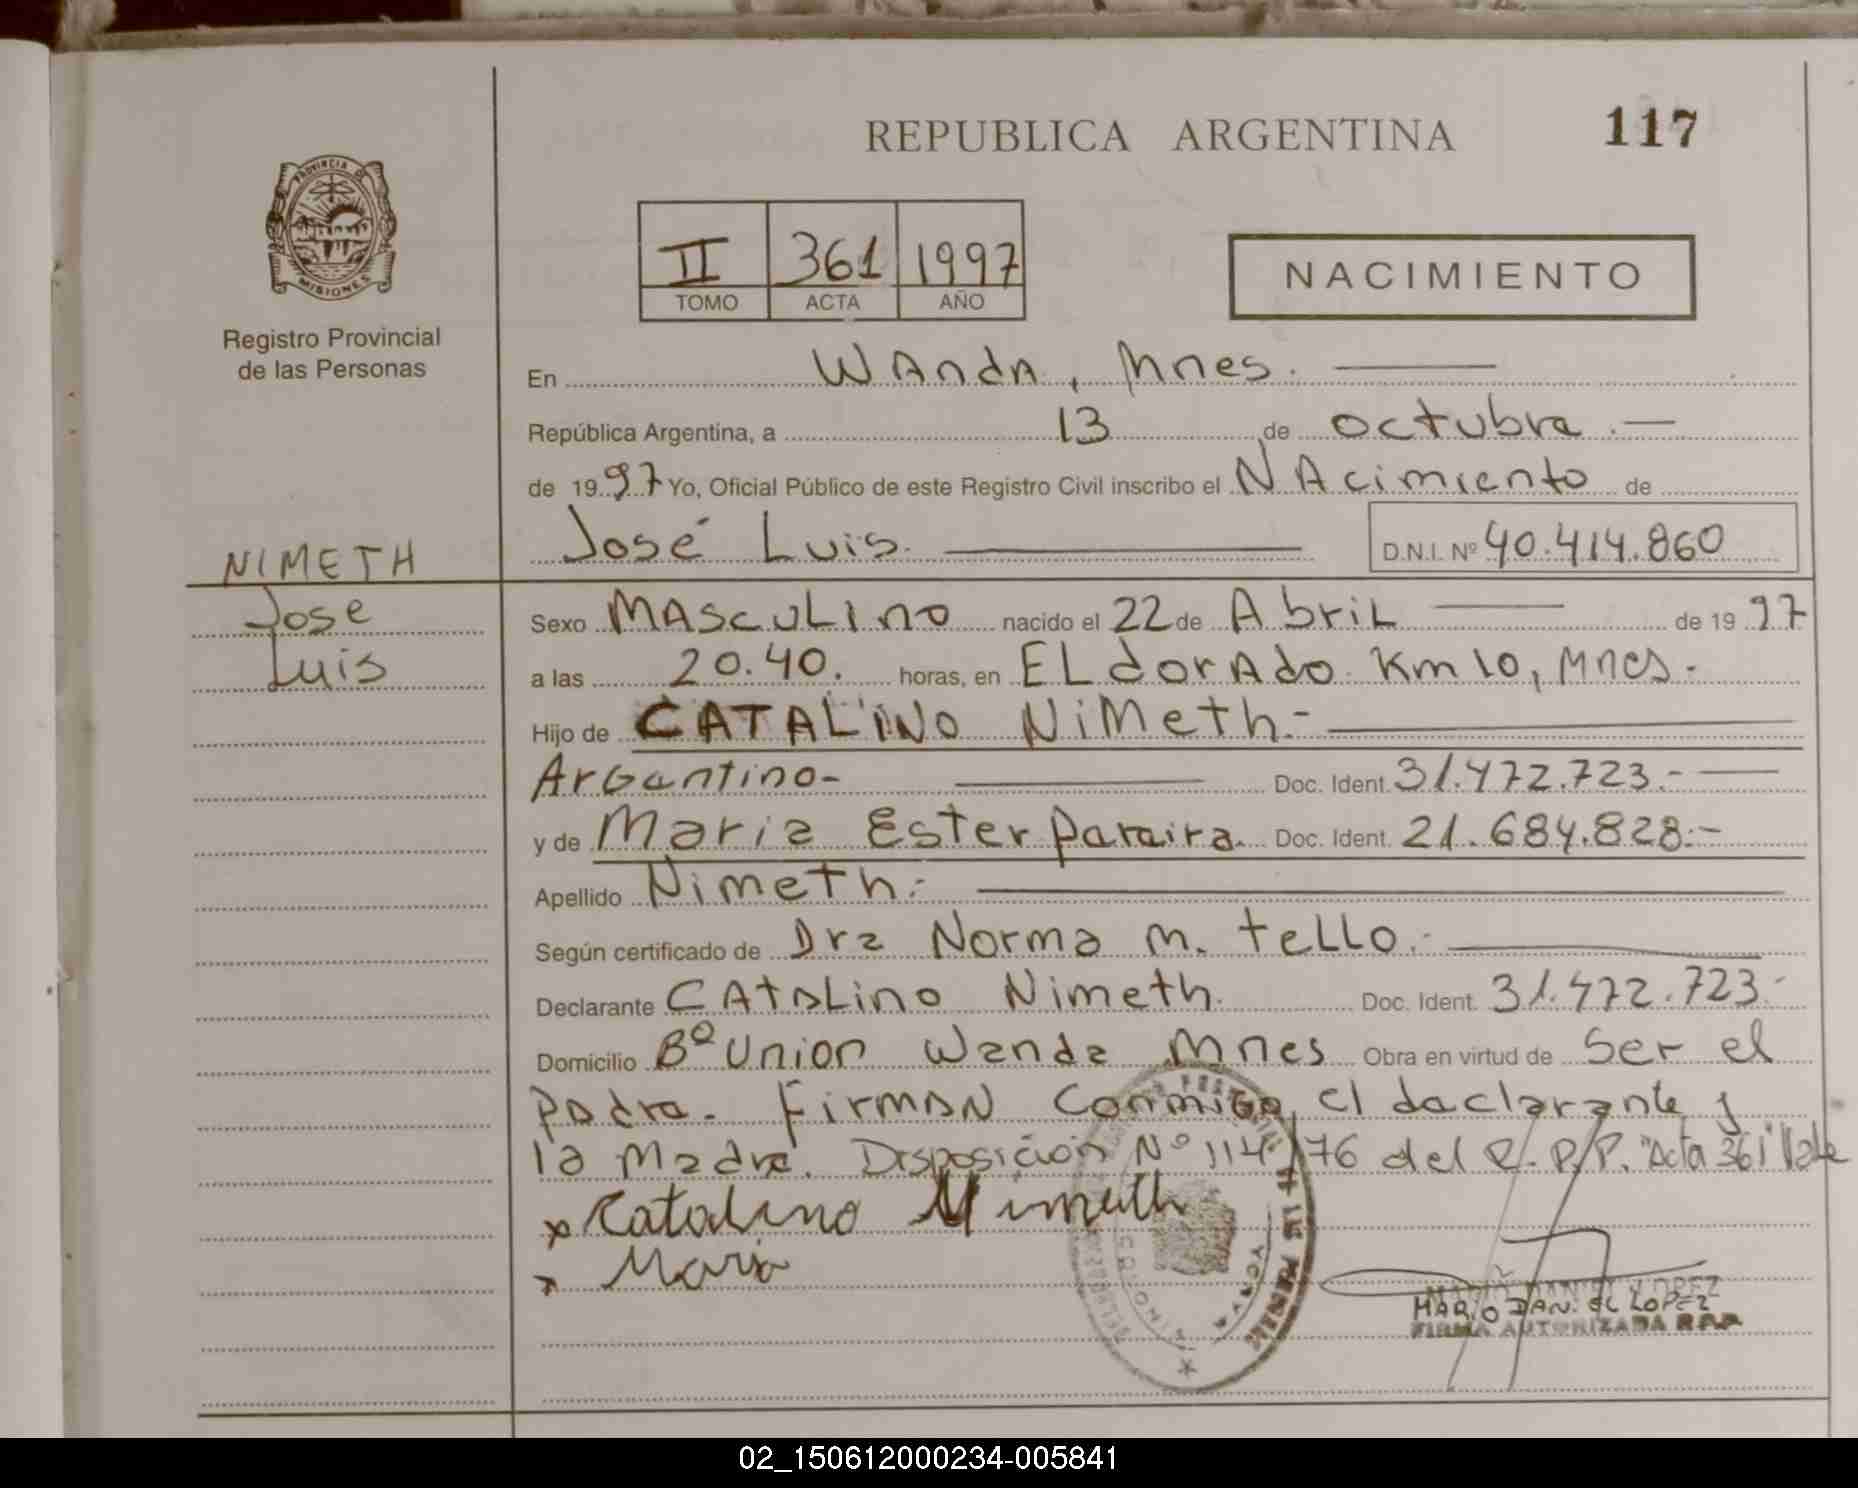 REPUBLICA ARGENTINA
117
PROVINCIA DE
MISIONES
Registro Provincial
de las Personas
II 361 1997
TOMO ACTA AÑO
NACIMIENTO
En WAndA, Mnes.
República Argentina, a 13 de octubre.
de 1997 Yo, Oficial Público de este Registro Civil inscribo el NAcimiento de
José Luis. D.N.I. Nº 40.414.860
NIMETH
Jose
Luis
Sexo MAscuLino nacido el 22 de AbriL de 1997
a las 20.40. horas, en ELdorAdo Km 10, Mnes.
Hijo de CATALINO NiMeth.-
Argentino- Doc. Ident. 31.472.723.-
y de Maria Ester pereira. Doc. Ident. 21.684.828.-
Apellido Nimeth.-
Según certificado de Dra Norma M. teLLO.-
Declarante CAtALino Nimeth. Doc. Ident. 31.472.723.-
Domicilio Bº Union Wanda Mnes Obra en virtud de Ser el
padre. FirmAN Conmigo el declarante y
la Madre. Disposición Nº 114/76 del R.P.P. "Acta 361" Vale
x Catalino Nimeth
x Maria
WANDA
MISIONES
MARIO DANIEL LOPEZ
MARIO DANIEL LOPEZ
FIRMA AUTORIZADA R.P.P.
02_150612000234-005841